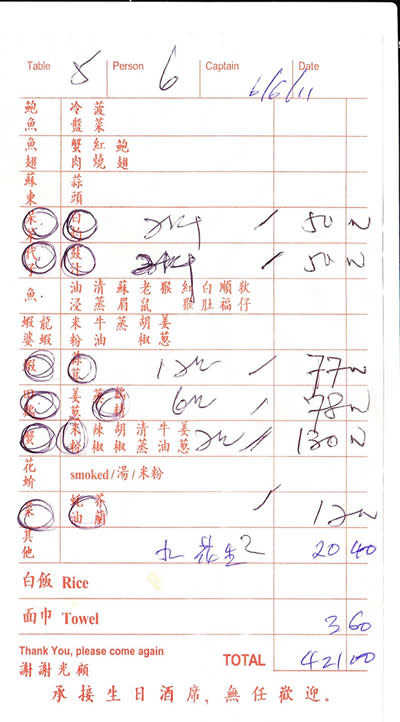 Table 5 Person 6 Captain Date
6/6/11
鮑 冷 菠
魚 盤 菜
魚 蟹 紅 鮑
翅 肉 燒 翅
蘇 蒜
東 頭
白
灼 / 50 00
代 豉
子 汁 / 50 00
魚 油 清 蘇 老 猴 紅 白 順 狄
浸 蒸 眉 鼠 猴 肚 福 仔
蝦 龍 米 牛 蒸 胡 薑
婆 蝦 粉 油 椒 蔥
蝦 / 77 00
薑
蔥 / 78 00
蟹 米 辣 胡 清 牛 薑
粉 椒 椒 蒸 油 蔥 130 00
花 smoked/湯/米粉
蚧
菜 蚝 芥
油 蘭 / 12 00
其
他 花生 2 20 40
白飯 Rice
面巾 Towel 3 60
Thank You, please come again
謝謝光顧 TOTAL 421 00
承接生日酒席，無任歡迎。